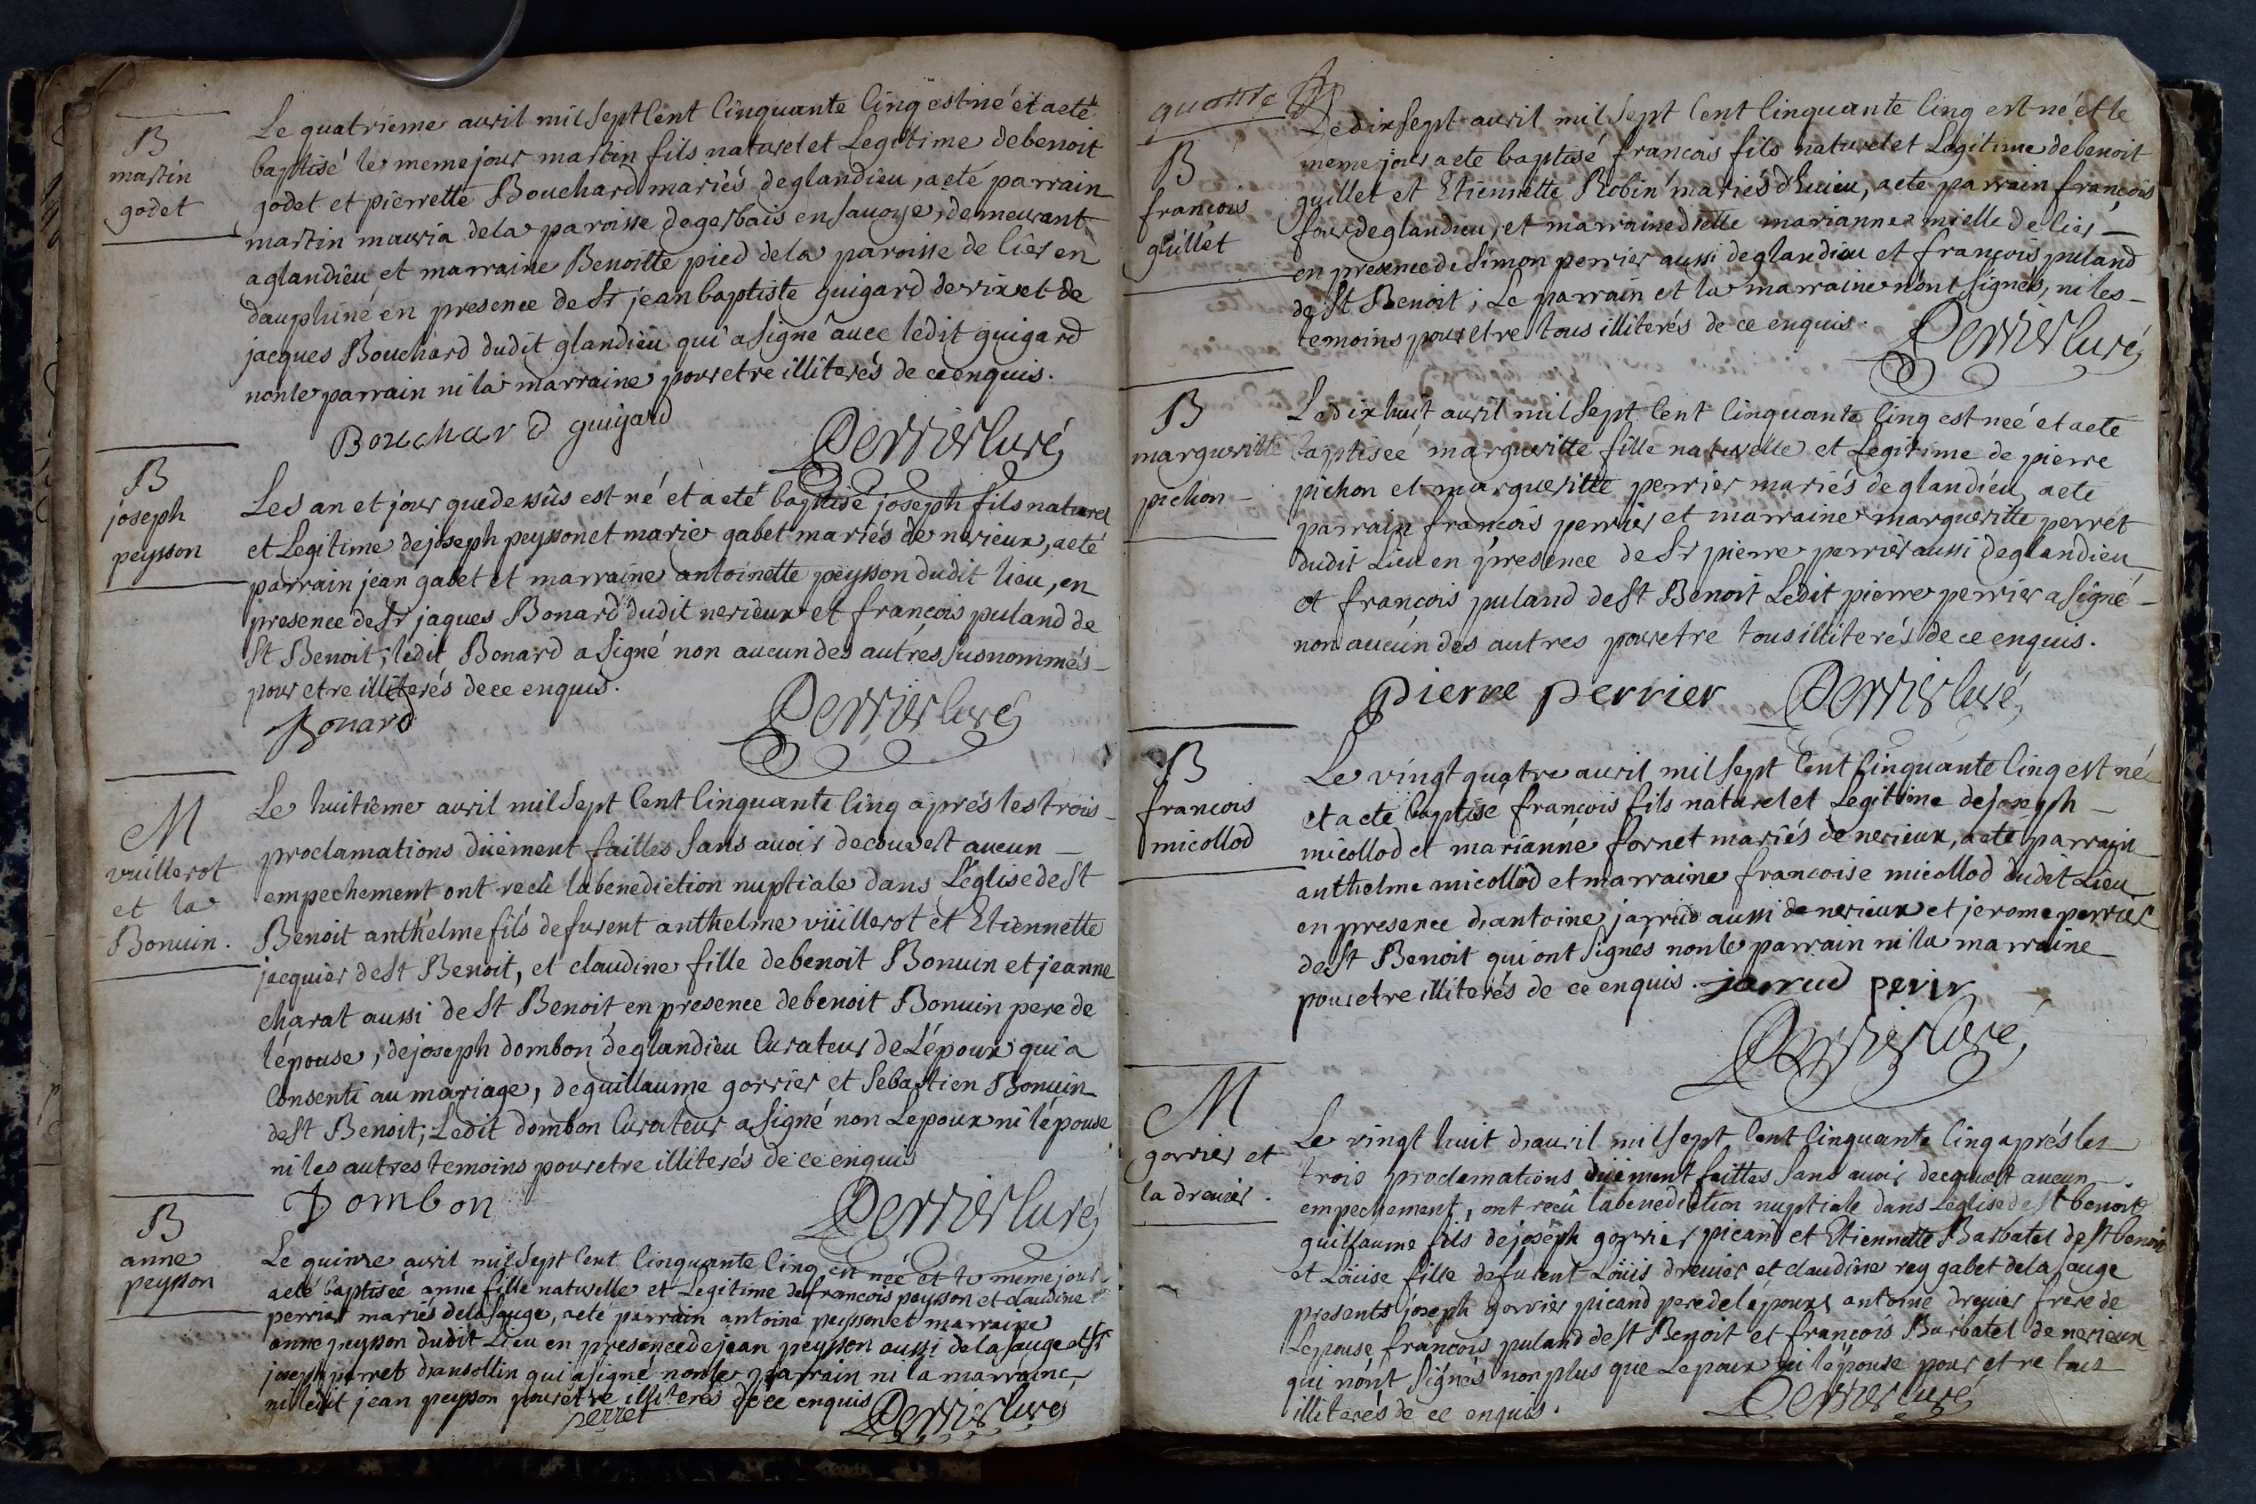 B
martin
godet
Le quatriéme avril mil sept Cent Cinquante Cinq est né et a eté
baptisé le meme jour martin fils naturel et Legitime de benoit
godet et pierrette Bouchard mariés de glandieu, a eté parrain
martin mauria de la paroisse de gerbais en savoye, demeurant
a glandieu et marraine Benoitte pied de la paroisse de liers en
dauphiné en presence de Sr jean baptiste guigard de virx et de
jacques Bouchard dudit glandieu qui a signé avec ledit guigard
non le parrain ni la marraine pour etre illiterés de ce enquis.
Bouchard guigard
Perrier Curé
B
joseph
peysson
Les an et jour que dessûs est né et a eté baptisé joseph fils naturel
et Legitime de joseph peysson et marie gabet mariés de nerieux, a eté
parrain jean gabet et marraine antoinette peysson dudit lieu, en
presence de Sr jaques Bonard dudit nerieux et françois puland de
St Benoit; ledit Bonard a signé non aucun des autres susnommés
pour etre illiterés de ce enquis.
Bonard
Perrier Curé
M
vuillerot
et la
Bonuin.
Le huitiême avril mil sept Cent Cinquante Cinq aprés les trois
proclamations düement faittes sans avoir decouvert aucun
empechement ont recû la benediction nuptiale dans L'église de St
Benoit anthelme fils de furent anthelme vüillerot et Etiennette
jacquier de St Benoit, et claudine fille de benoit Bonuin et jeanne
charat aussi de St Benoit en presence de benoit Bonuin pere de
l'épouse, de joseph dombon de glandieu Curateur de L'époux qui a
Consenti au mariage, de guillaume gorrier et Sebastien Bonuin
de St Benoit; Ledit dombon Curateur a signé non Lepoux ni l'épouse
ni les autres temoins pour etre illiterés de ce enquis
Dombon
Perrier Curé
B
anne
peysson
Le quinze avril mil sept Cent Cinquante Cinq est née et le meme jour
a eté baptisée anne fille naturelle et Legitime de francois peysson et claudine
perrier mariés de la sauge, a eté parrain antoine peysson et marraine
anne peysson dudit Lieu en presence de jean peysson aussi de la sauge et Sr
joseph perret d'ansollin qui a signé non le parrain ni la marraine
ni ledit jean peysson pour etre illiterés de ce enquis
perret
Perrier Curé
quatre
B
francois
guillet
Le dix sept avril mil sept Cent Cinquante Cinq est né et le
meme jour a eté baptisé francois fils naturel et Legitime de benoit
guillet et Etiennette Robin mariés d'Evieu, a eté parrain françois
four de glandieu, et marraine dselle marianne mielle de liers
en presence de Simon perrier aussi de glandieu et françois puland
de St Benoit; Le parrain et la marraine n'ont signés, ni les
temoins pour etre tous illiterés de ce enquis.
Perrier Curé
B
margueritte
pichon
Le dix huit avril mil sept Cent Cinquante Cinq est née et a eté
baptisée margueritte fille naturelle et Legitime de pierre
pichon et margueritte perrier mariés de glandieu, a eté
parrain francois perrier et marraine margueritte perret
dudit Lieu en presence de Sr pierre perrier aussi de glandieu
et françois puland de St Benoit Ledit pierre perrier a signé
non aucun des autres pour etre tous illiterés de ce enquis.
pierre perrier
Perrier Curé
B
francois
micollod
Le vingt quatre avril mil sept Cent Cinquante Cinq est né
et a eté baptisé françois fils naturel et Legitime de joseph
micollod et marianne fornet mariés de nerieux, a eté parrain
anthelme micollod et marraine francoise micollod dudit Lieu
en presence d'antoine jarrud aussi de nerieux et jerome perrier
de St Benoit qui ont signés non le parrain ni la marraine
pour etre illiterés de ce enquis. jarrud perir
Perrier Curé
M
gorrier et
la drevier.
Le vingt huit d'avril mil sept Cent Cinquante Cinq aprés les
trois proclamations düement faittes sans avoir decouvert aucun
empechement, ont recû la benediction nuptiale dans L'église de St benoit
guillaume fils de joseph gorrier picand et Etiennette Barbatel de St benoit
et Loüise fille de furent Loüis drevier et claudine rey gabet de la sauge
presents joseph gorrier picand pere de l'epoux, antoine drevier frere de
Lepouse francois puland de St Benoit et francois Barbatel de nerieux
qui n'ont signés non plus que Lepoux ni l'épouse pour etre tous
illiterés de ce enquis.
Perrier Curé